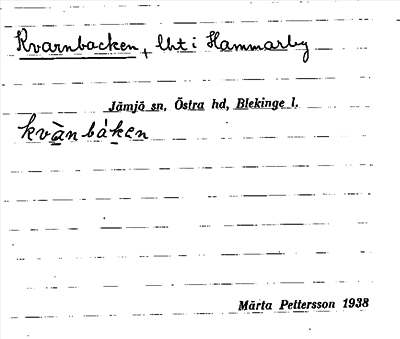 Kvarnbacken + lht i Hammarby
Jämjö sn, Östra hd, Blekinge l.
kvànbáken
Märta Pettersson 1938